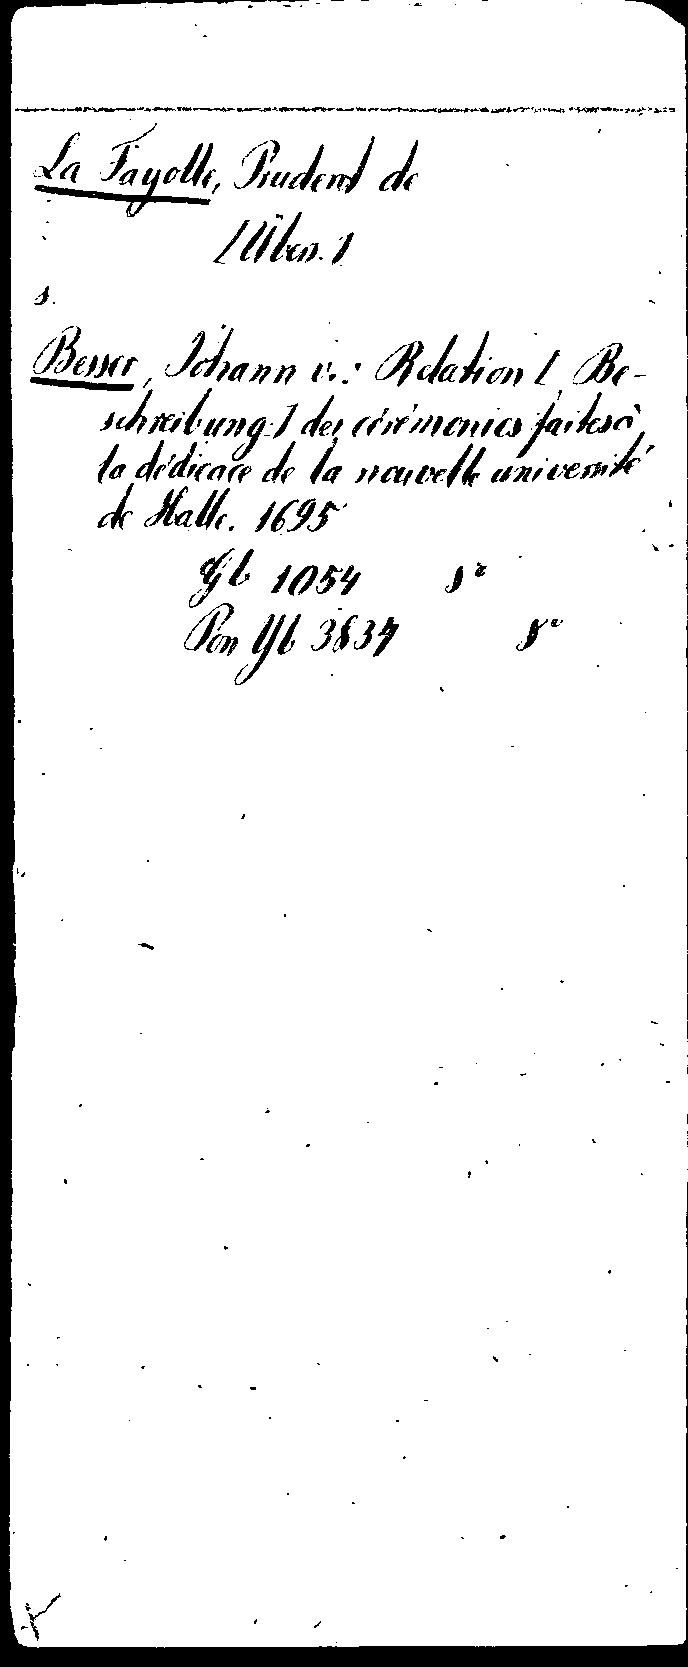 La Fayolle, Prudent de
[Üben.]
s.
Besser, Johann v.: Relation [Be-
schreibung] des cérémonies faites à
la dédicace de la nouvelle université
de Halle. 1695
Yb 1054 8°
Pon Yb 3834 8°